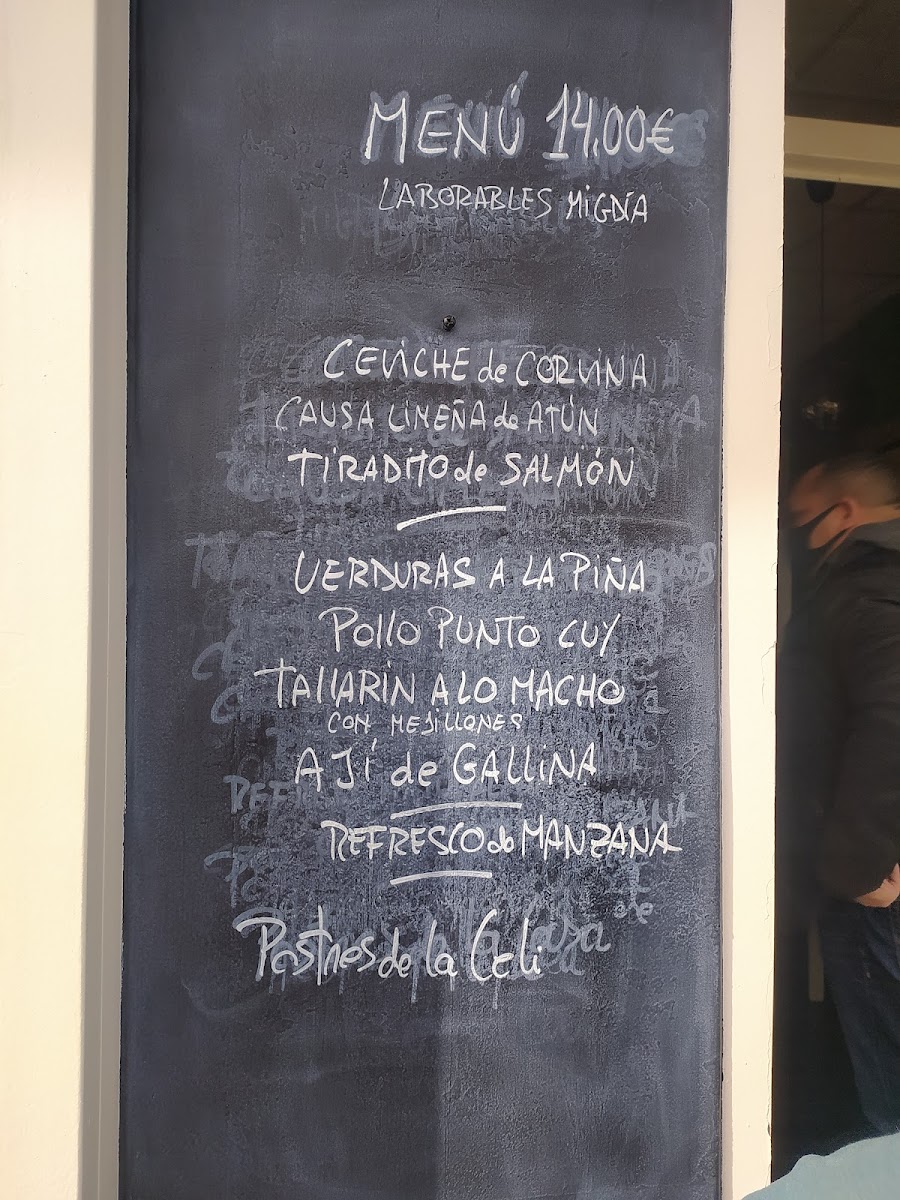 MENÚ 14.00€
LABORABLES MIGDÍA
CEVICHE de CORVINA
CAUSA LIMEÑA de ATÚN
TIRADITO de SALMÓN
VERDURAS A LA PIÑA
Pollo PUNTO CUY
TALLARÍN A LO MACHO
CON MEJILLONES
AJÍ de GALLINA
REFRESCO de MANZANA
Postres de la Celi